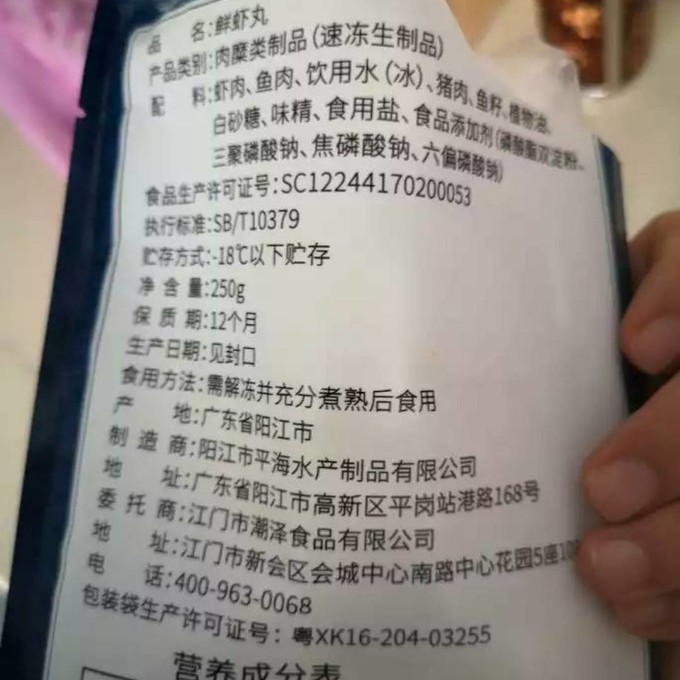 品 名:鲜虾丸
产品类别:肉糜类制品(速冻生制品)
配 料:虾肉、鱼肉、饮用水(冰)、猪肉、鱼籽、植物油、
白砂糖、味精、食用盐、食品添加剂(磷酸酯双淀粉、
三聚磷酸钠、焦磷酸钠、六偏磷酸钠)
食品生产许可证号:SC12244170200053
执行标准:SB/T10379
贮存方式:-18℃以下贮存
净 含 量:250g
保 质 期:12个月
生产日期:见封口
食用方法:需解冻并充分煮熟后食用
产 地:广东省阳江市
制 造 商:阳江市平海水产制品有限公司
地 址:广东省阳江市高新区平岗站港路168号
委 托 商:江门市潮泽食品有限公司
地 址:江门市新会区会城中心南路中心花园5座10
电 话:400-963-0068
包装袋生产许可证号:粤XK16-204-03255
营养成分表